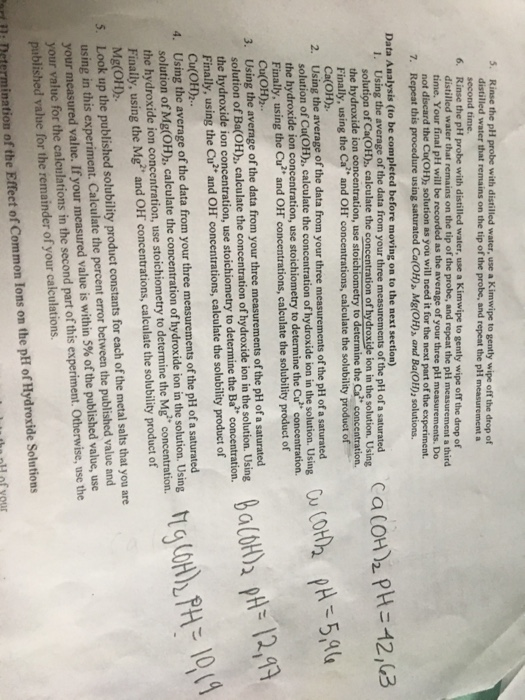 5. Rinse the pH probe with distilled water, use a Kimwipe to gently wipe off the drop of
distilled water that remains on the tip of the probe, and repeat the pH measurement a
second time.
6. Rinse the pH probe with distilled water, use a Kimwipe to gently wipe off the drop of
distilled water that remains on the tip of the probe, and repeat the pH measurement a third
time. Your final pH will be recorded as the average of your three pH measurements. Do
not discard the Cu(OH)₂ solution as you will need it for the next part of the experiment.
7. Repeat this procedure using saturated Ca(OH)₂, Mg(OH)₂, and Ba(OH)₂ solutions.
Data Analysis (to be completed before moving on to the next section)
1. Using the average of the data from your three measurements of the pH of a saturated
solution of Ca(OH)₂, calculate the concentration of hydroxide ion in the solution. Using
the hydroxide ion concentration, use stoichiometry to determine the Ca²⁺ concentration.
Finally, using the Ca²⁺ and OH⁻ concentrations, calculate the solubility product of
Ca(OH)₂.
Ca(OH)₂ PH = 12,63
2. Using the average of the data from your three measurements of the pH of a saturated
solution of Cu(OH)₂, calculate the concentration of hydroxide ion in the solution. Using
the hydroxide ion concentration, use stoichiometry to determine the Cu²⁺ concentration.
Finally, using the Cu²⁺ and OH⁻ concentrations, calculate the solubility product of
Cu(OH)₂.
Cu(OH)₂ pH = 5,96
3. Using the average of the data from your three measurements of the pH of a saturated
solution of Ba(OH)₂, calculate the concentration of hydroxide ion in the solution. Using
the hydroxide ion concentration, use stoichiometry to determine the Ba²⁺ concentration.
Finally, using the Ca²⁺ and OH⁻ concentrations, calculate the solubility product of
Cu(OH)₂.
Ba(OH)₂ pH = 12,97
4. Using the average of the data from your three measurements of the pH of a saturated
solution of Mg(OH)₂, calculate the concentration of hydroxide ion in the solution. Using
the hydroxide ion concentration, use stoichiometry to determine the Mg²⁺ concentration.
Finally, using the Mg²⁺ and OH⁻ concentrations, calculate the solubility product of
Mg(OH)₂.
Mg(OH)₂ PH = 10,19
5. Look up the published solubility product constants for each of the metal salts that you are
using in this experiment. Calculate the percent error between the published value and
your measured value. If your measured value is within 5% of the published value, use
your value for the calculations in the second part of this experiment. Otherwise, use the
published value for the remainder of your calculations.
Determination of the Effect of Common Ions on the pH of Hydroxide Solutions
pH of your